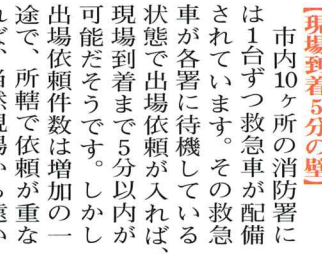 【現場到着5分の壁】
市内10ヶ所の消防署に
は1台ずつ救急車が配備
されています。その救急
車が各署に待機している
状態で出場依頼が入れば、
現場到着まで5分以内が
可能だそうです。しかし
出場依頼件数は増加の一
途で、所轄で依頼が重な
れば、当然現場から遠い